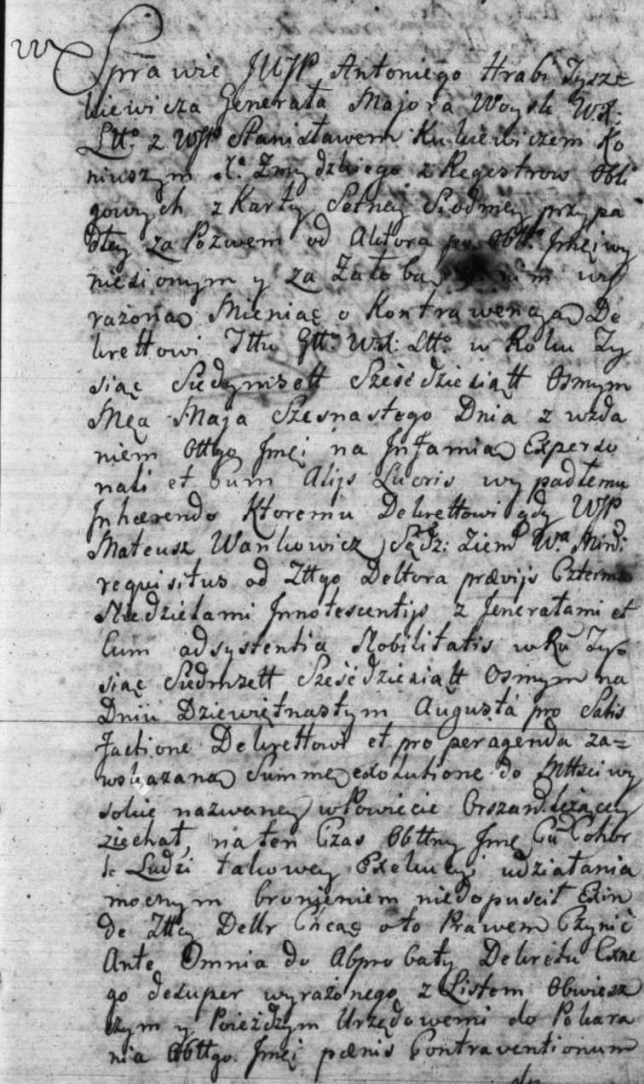 W Sprawie JWJP Antoniego Hrabi Tysze
kiewicza Generała Majora Woysk Wx:
Ltto z WJP Stanisławem Kukiewiczem Ko
niuszym Xa Zmydzkiego z Regestrow Obli
gowych z Karty Setney Siodmey przypa
dłey za Pozwem od Aktora po Obtt Jmci wy
niesionym y za Załobą w nim wy
rażoną Mieniąc o Kontrawencyą De
krettowi Ittu Gttu Wx: Ltto w Roku Ty
siąc Siedymsett Sześćdziesiątt Osmym
Mca Maja Szesnastego Dnia z wzda
niem Obttgo Jmci na Infamią Experso
nali et Cum Alijs Lucris wypadłemu
Inhærendo Ktoremu Dekrettowi gdy WJP
Mateusz Wankowicz Sędz: Ziem Wa Mindi
requisitus od Zttgo Delltora prævijs Czterma
Niedzielami Innotescentijs z Jenerałami et
Cum adsystentia Nobilitatis w Ru Ty
siąc Siedmsett Sześćdziesiątt Osmym na
Dniu Dziewiętnastym Augusta pro Satis
factione Dekrettowi et pro peragenda za=
wskazaną Summę exolutione do Mttści wy
sokie nazwaney w Powiecie Orszanskleżącey
ziechał, na ten Czas Obttny Jmc Cu Cohor
te Ludzi takowey Exekucyi udziałania
mocnym bronieniem niedopuścił Exin
de Zttcy Delltr Chcąc oto Prawem Czynić
Ante Omnia do Abprobaty Dekretu Exne
go desuper wyrażonego z Listem Obwiesz
czym y Poieżdzym Urzędowemi do Pokara
nia Obttgo Jmci pænis Contraventionum